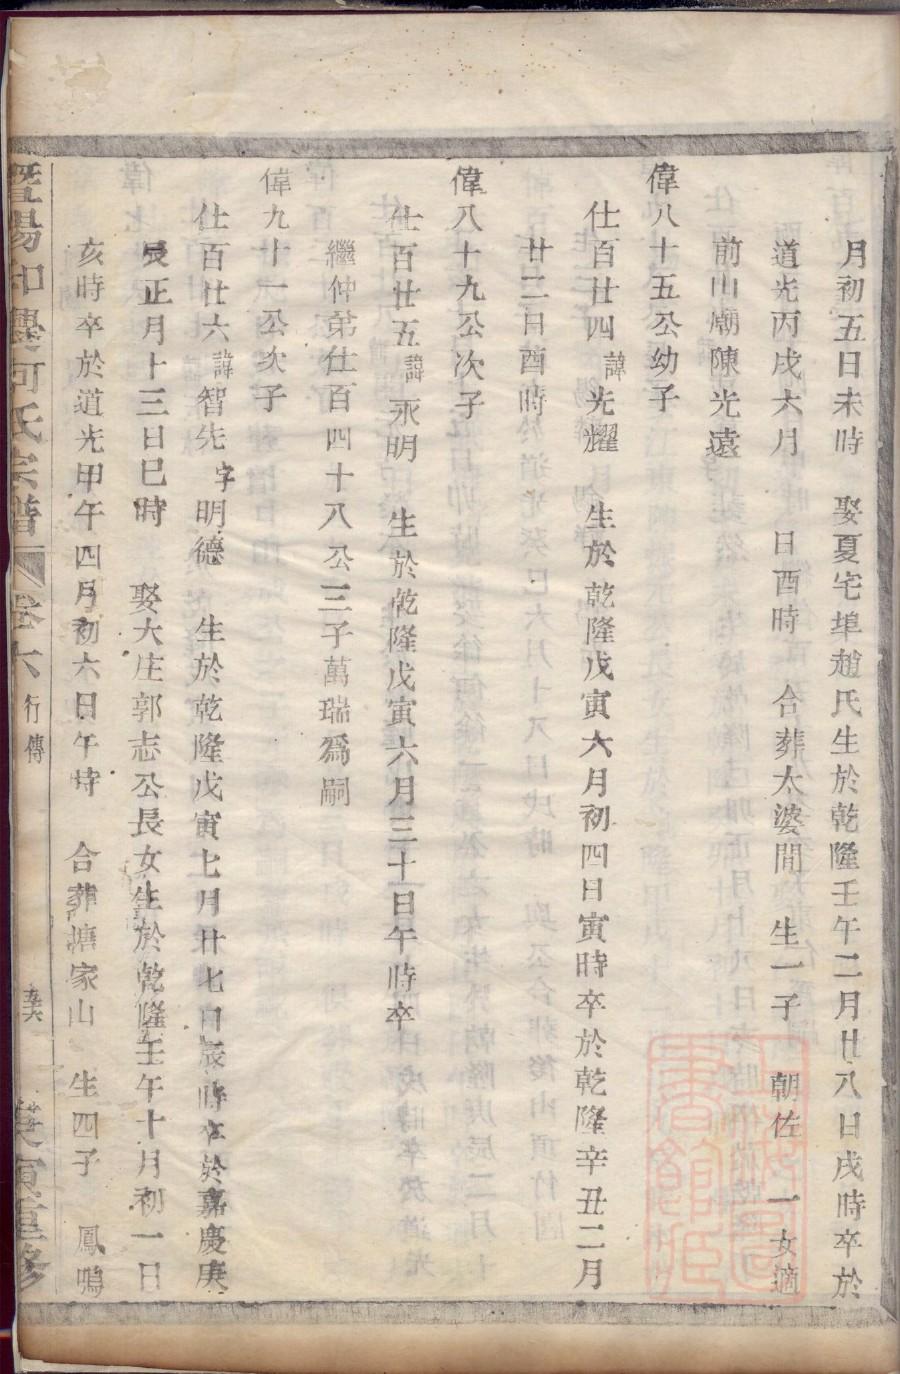 月初五日未時　娶夏宅埠趙氏生於乾隆壬午二月廿八日戌時卒於
道光丙戌六月　日酉時　合葬太婆間　生一子　朝佐　一女適
前山廟陳光遠
偉八十五公幼子
仕百廿四諱光耀　生於乾隆戊寅六月初四日寅時卒於乾隆辛丑二月
廿二日酉時
偉八十九公次子
仕百廿五諱永明　生於乾隆戊寅六月三十日午時卒
繼仲弟仕百四十八公三子萬瑞爲嗣
偉九十一公次子
仕百廿六諱智先字明德　生於乾隆戊寅七月廿七日辰時卒於嘉慶庚
辰正月十三日巳時　娶大庄郭志公長女生於乾隆壬午十月初一日
亥時卒於道光甲午四月初六日午時　合葬塘家山　生四子　鳳鳴
暨陽　何氏宗譜　卷六　行傳　重修